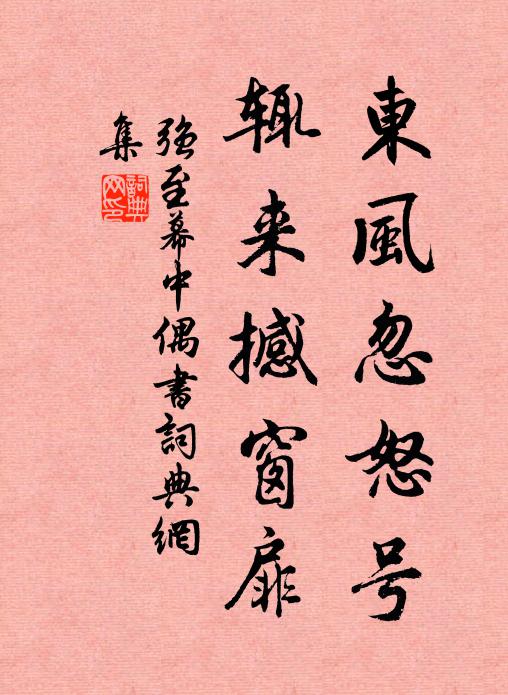 東風忽怒号
輙来撼窗扉
强至幕中偶書詞典網
集
詞典网印